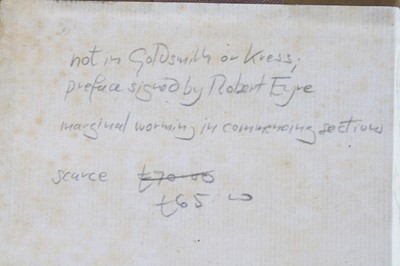 not in Goldsmith or Kress;
preface signed by Robert Eyre
marginal worming in commencing sections
scarce £70-00
£65 00